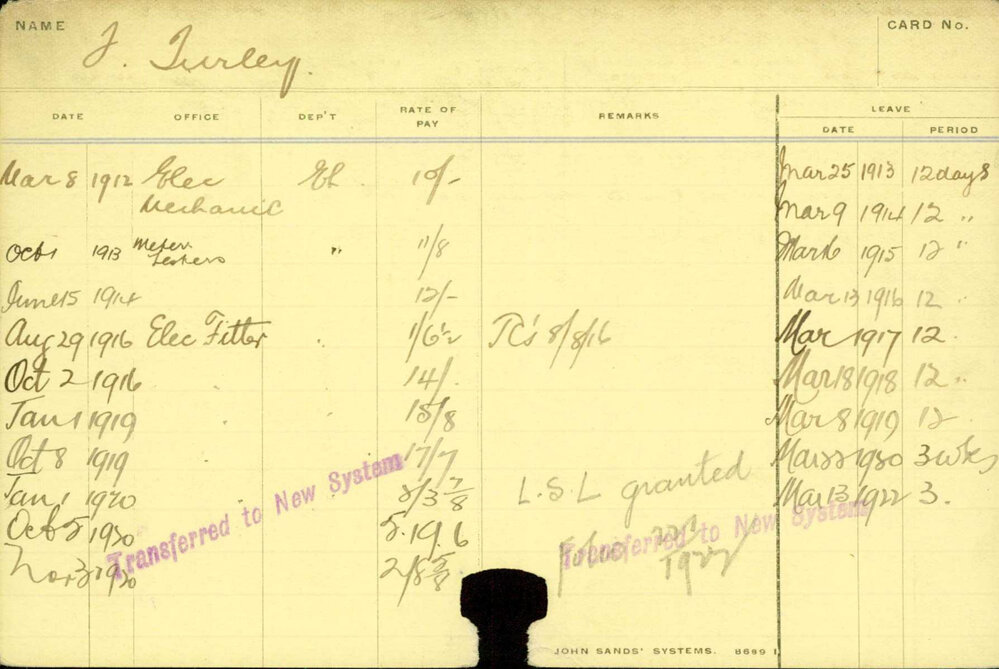 NAME J. Turley. CARD No.
DATE OFFICE DEP'T RATE OF PAY REMARKS LEAVE
DATE PERIOD
Mar 8 1912 Elec El 10/- Mar 25 1913 12 days
Mechanic Mar 9 1914 12 "
Oct 1 1913 Meter " 11/8 Mar 16 1915 12 "
Testers
June 15 1914 12/- Mar 13 1916 12 "
Aug 29 1916 Elec Fitter " 1/6½ 8/8/16 Mar 1917 12 "
Oct 2 1916 14/- Mar 18 1918 12 "
Jan 1 1919 15/8 Mar 8 1919 12
Oct 8 1919 17/7 Mar 22 1920 3 wks
Jan 1 1920 2/3 7/8 L.S.L granted Mar 13 1922 3 "
Oct 5 1920 5.19.6
Nov 3 1920 2/8 5/8 1922
Transferred to New System
Transferred to New System
JOHN SANDS' SYSTEMS. 8689 1